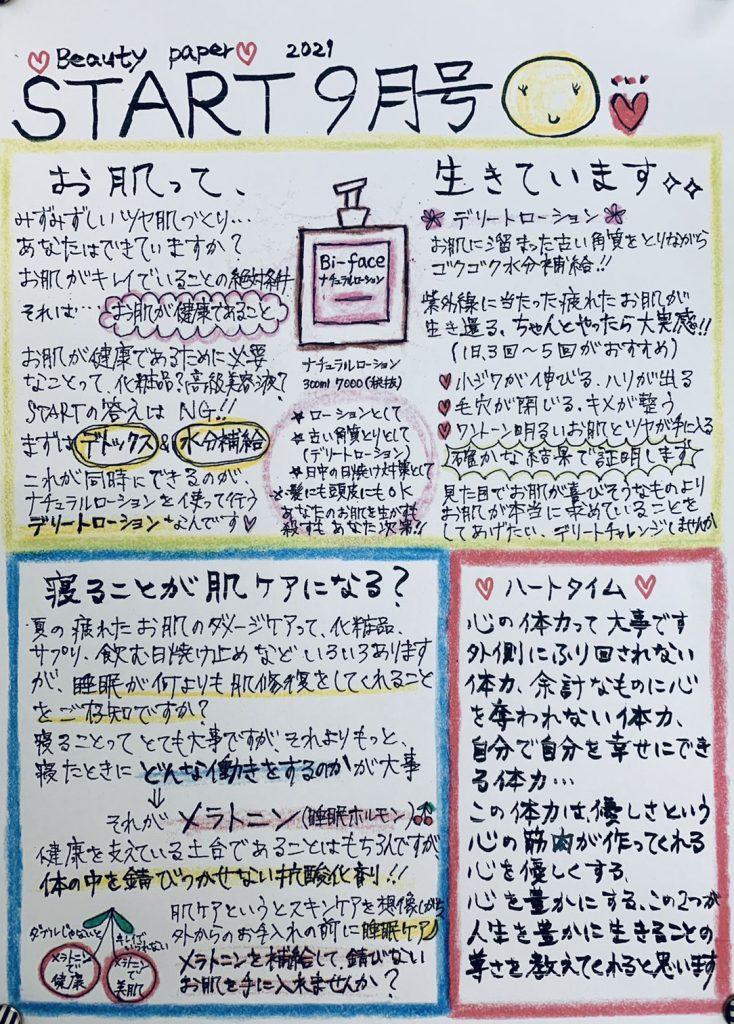 Beauty paper 2021
START 9月号
お肌って、
みずみずしいツヤ肌づくり…
あなたはできていますか？
お肌がキレイでいることの絶対条件
それは… お肌が健康であること
お肌が健康であるために必要
なことって、化粧品？高級美容液？
STARTの答えは NG!!
まずは デトックス & 水分補給
これが同時にできるのが、
ナチュラルローションを使って行う
デリートローションなんです
Bi-face
ナチュラルローション
ナチュラルローション
300ml 7000(税抜)
★ローションとして
★古い角質とりとして
(デリートローション)
★日中の日焼け対策として
★髪にも頭皮にもOK
あなたのお肌を生かすも
殺すもあなた次第!!
生きています
デリートローション
お肌に溜まった古い角質をとりながら
ゴクゴク水分補給!!
紫外線に当たった疲れたお肌が
生き還る。ちゃんとやったら大実感!!
(1日、3回～5回がおすすめ)
小ジワが伸びる、ハリが出る
毛穴が閉じる、キメが整う
ワントーン明るいお肌とツヤが手に入る
確かな結果で証明します
見た目でお肌が喜びそうなものより
お肌が本当に求めていることを
してあげたい、デリートチャレンジしませんか
寝ることが肌ケアになる？
夏の疲れたお肌のダメージケアって、化粧品、
サプリ、飲む日焼け止めなどいろいろあります
が、睡眠が何よりも肌修復をしてくれること
をご存知ですか？
寝ることってとても大事ですが、それよりもっと、
寝たときにどんな働きをするのかが大事
↓
それが メラトニン(睡眠ホルモン)
健康を支えている土台であることはもちろんですが、
体の中を錆びつかせない抗酸化剤!!
肌ケアというとスキンケアを想像しがち
外からのお手入れの前に睡眠ケア♪
メラトニンを補給して錆びない
お肌を手に入れませんか？
ダブルじゃないと
キレイでいられない
メラトニンで健康
メラトニンで美肌
ハートタイム
心の体力って大事です
外側にふり回されない
体力、余計なものに心
を奪われない体力、
自分で自分を幸せにでき
る体力…
この体力は、優しさという
心の筋肉が作ってくれる
心を優しくする、
心を豊かにする、この2つが
人生を豊かに生きることの
尊さを教えてくれると思います